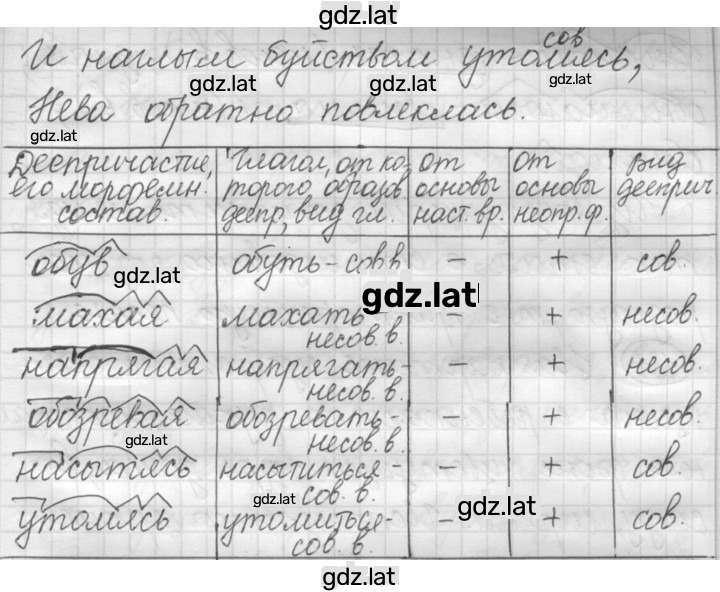 gdz.lat
сов
И наглым буйством утомясь,
gdz.lat gdz.lat gdz.lat
Нева обратно повлеклась.
gdz.lat
Деепричастие, его морфемн. состав. | Глагол, от ко- торого образов. деепр, вид гл. | от основы наст. вр. | от основы неопр. ф. | вид дееприч
обув | обуть - сов в | – | + | сов.
gdz.lat
gdz.lat
махая | махать - несов. в. | – | + | несов.
напрягая | напрягать - несов. в. | – | + | несов.
обозревая | обозревать - несов. в. | – | + | несов.
gdz.lat
насытясь | насытиться - сов. в. | – | + | сов.
gdz.lat gdz.lat
утомясь | утомиться - сов. в. | – | + | сов.
gdz.lat